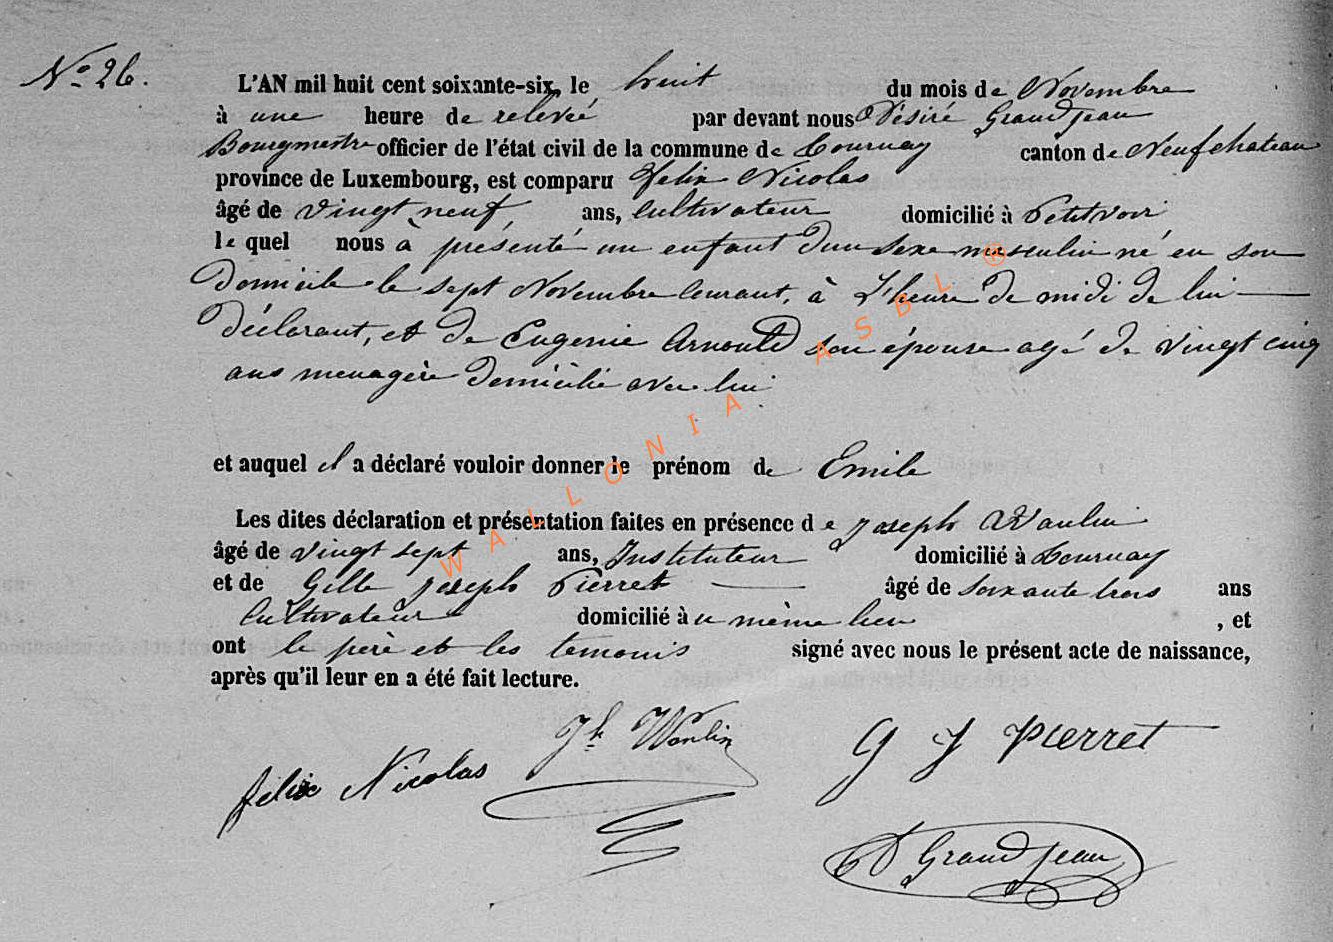 Nº 26.
L'AN mil huit cent soixante-six, le huit du mois de Novembre
à une heure de relevée par devant nous Désiré Grandjean
Bourgmestre officier de l'état civil de la commune de Tournay canton de Neufchateau
province de Luxembourg, est comparu Felix Nicolas
âgé de vingt neuf, ans, cultivateur domicilié à Petitvoir
le quel nous à présenté un enfant d'un sexe masculin né en son
domicile le sept Novembre courant, à l'heure de midi de lui
déclarant, et de Eugenie Arnould son épouse agé de vingt cinq
ans menagère domicilié avec lui
et auquel il a déclaré vouloir donner le prénom de Emile
Les dites déclaration et présentation faites en présence de Joseph Waulin
âgé de vingt sept ans, Instituteur domicilié à Tournay
et de Gille Joseph Pierret âgé de soixante trois ans
Cultivateur domicilié à u même lieu , et
ont le père et les temoins signé avec nous le présent acte de naissance,
après qu'il leur en a été fait lecture.
félix Nicolas Jh Waulin G J Pierret
D Grandjean
WALLONIA ASBL ®